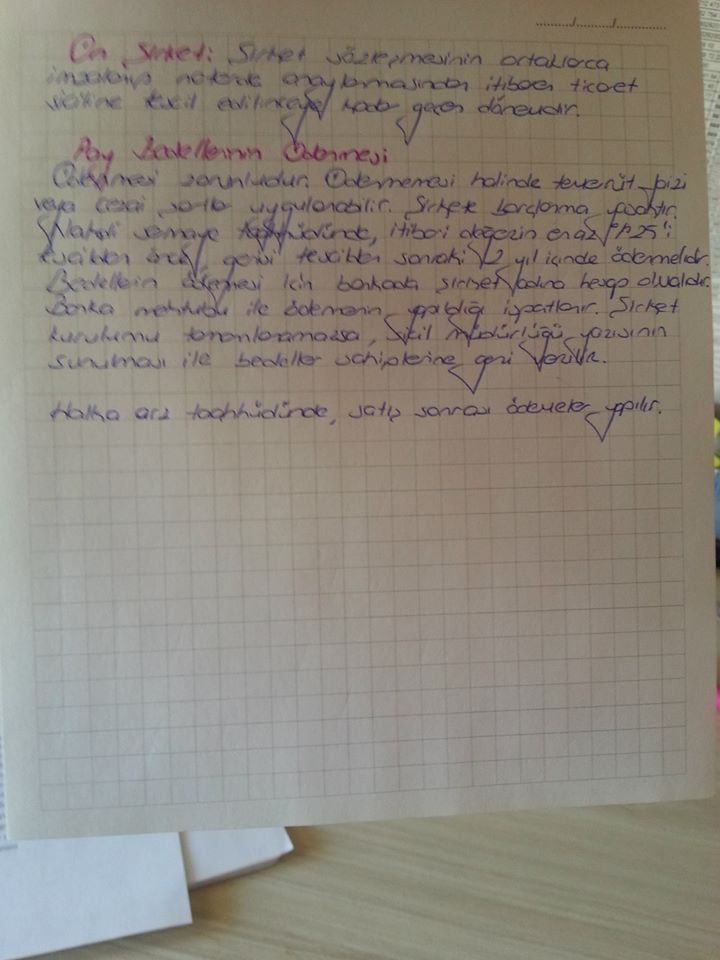 Ön Şirket: Şirket sözleşmesinin ortaklarca
imzalanıp noterde onaylanmasından itibaren ticaret
siciline tescil edilinceye kadar geçen dönemdir.
Pay Bedellerinin Ödenmesi
Ödenmesi zorunludur. Ödenmemesi halinde temerrüt faizi
veya cezai şartlar uygulanabilir. Şirkete borçlanma yasaktır.
Nakdi sermaye taahhüdünde, itibari değerin en az %25'i
tescilden önce, gerisi tescilden sonraki 2 yıl içinde ödenmelidir.
Bedellerin ödenmesi için bankada şirket adına hesap olmalıdır.
Banka mektubu ile ödemenin yapıldığı ispatlanır. Şirket
kurulumu tamamlanamazsa, sicil müdürlüğü yazısının
sunulması ile bedeller sahiplerine geri verilir.
Halka arz taahhüdünde, satış sonrası ödemeler yapılır.